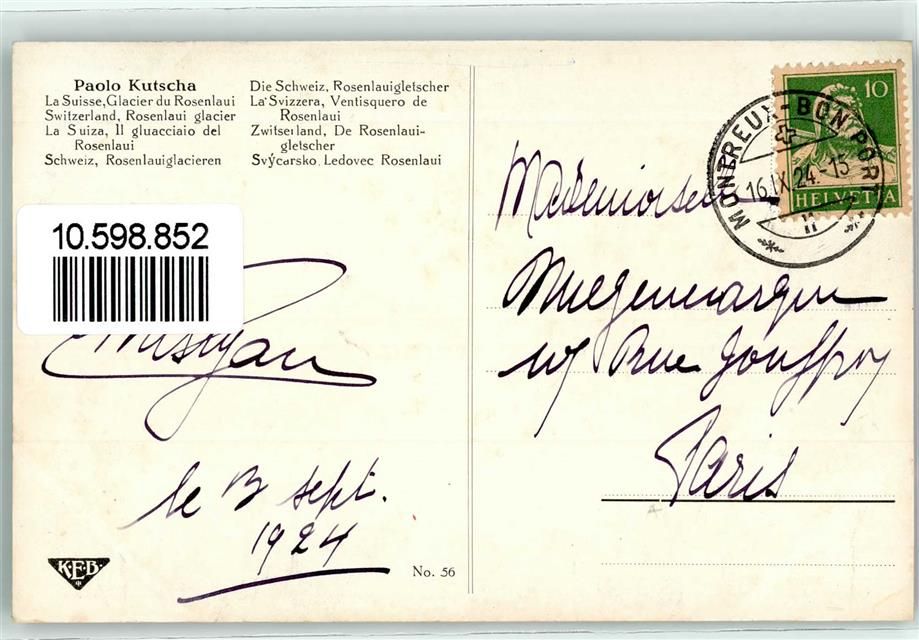 Paolo Kutscha
La Suisse,Glacier du Rosenlaui
Switzerland, Rosenlaui glacier
La Suiza, Il gluacciaio del
Rosenlaui
Schweiz, Rosenlauiglacieren
Die Schweiz, Rosenlauigletscher
La Svizzera, Ventisquero de
Rosenlaui
Zwitserland, De Rosenlaui-
gletscher
Svýcarsko, Ledovec Rosenlaui
10.598.852
le 13 sept.
1924
K.E.B.
No. 56
10
HELVETIA
MONTREUX-BON PORT
16.IX.24.-15
Mademoiselle
Rue Jouffroy
Paris